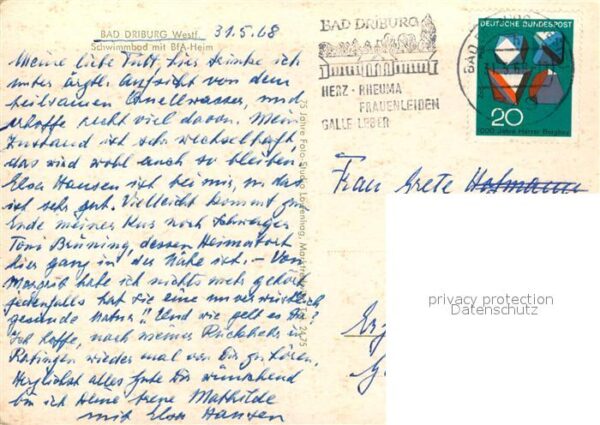 BAD DRIBURG Westf. 31.5.68
Schwimmbad mit BfA-Heim
Meine liebe , hier trinke ich
unter ärztl. Aufsicht von dem
heilsamen Quellwasser, und
erhoffe recht viel davon. Mein
Zustand ist sehr wechselhaft,
das wird wohl auch so bleiben.
Elsa Hansen ist bei mir, u. das
ist sehr gut. Vielleicht kommt zum
Ende meiner Kur noch Schwager
Toni Brüning, dessen Heimatort
hier ganz in der Nähe ist. – Von
Margrit habe ich nichts mehr gehört,
jedenfalls hat sie eine unverwüstlich
gesunde Natur!! Und wie geht es Dir?
Ich hoffe, nach meiner Rückkehr in
Ratingen wieder mal von Dir zu hören.
Herzlichst alles Gute Dir wünschend
bin ich Deine treue Mathilde
mit Elsa Hansen
75 Jahre Foto-Studio
BAD DRIBURG
HERZ - RHEUMA
FRAUENLEIDEN
GALLE-LEBER
DEUTSCHE BUNDESPOST
20
1000 Jahre Harzer Bergbau
BAD
Frau Grete Hofmann
privacy protection
Datenschutz